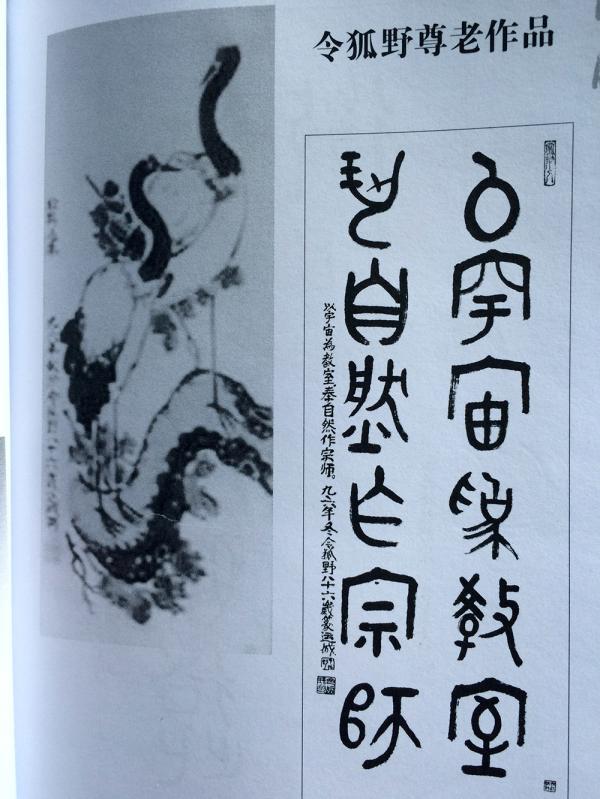 令狐野尊老作品
以宇宙為教室
奉自然作宗師
以宇宙為教室奉自然作宗師。九六年冬令狐野八十六歲篆